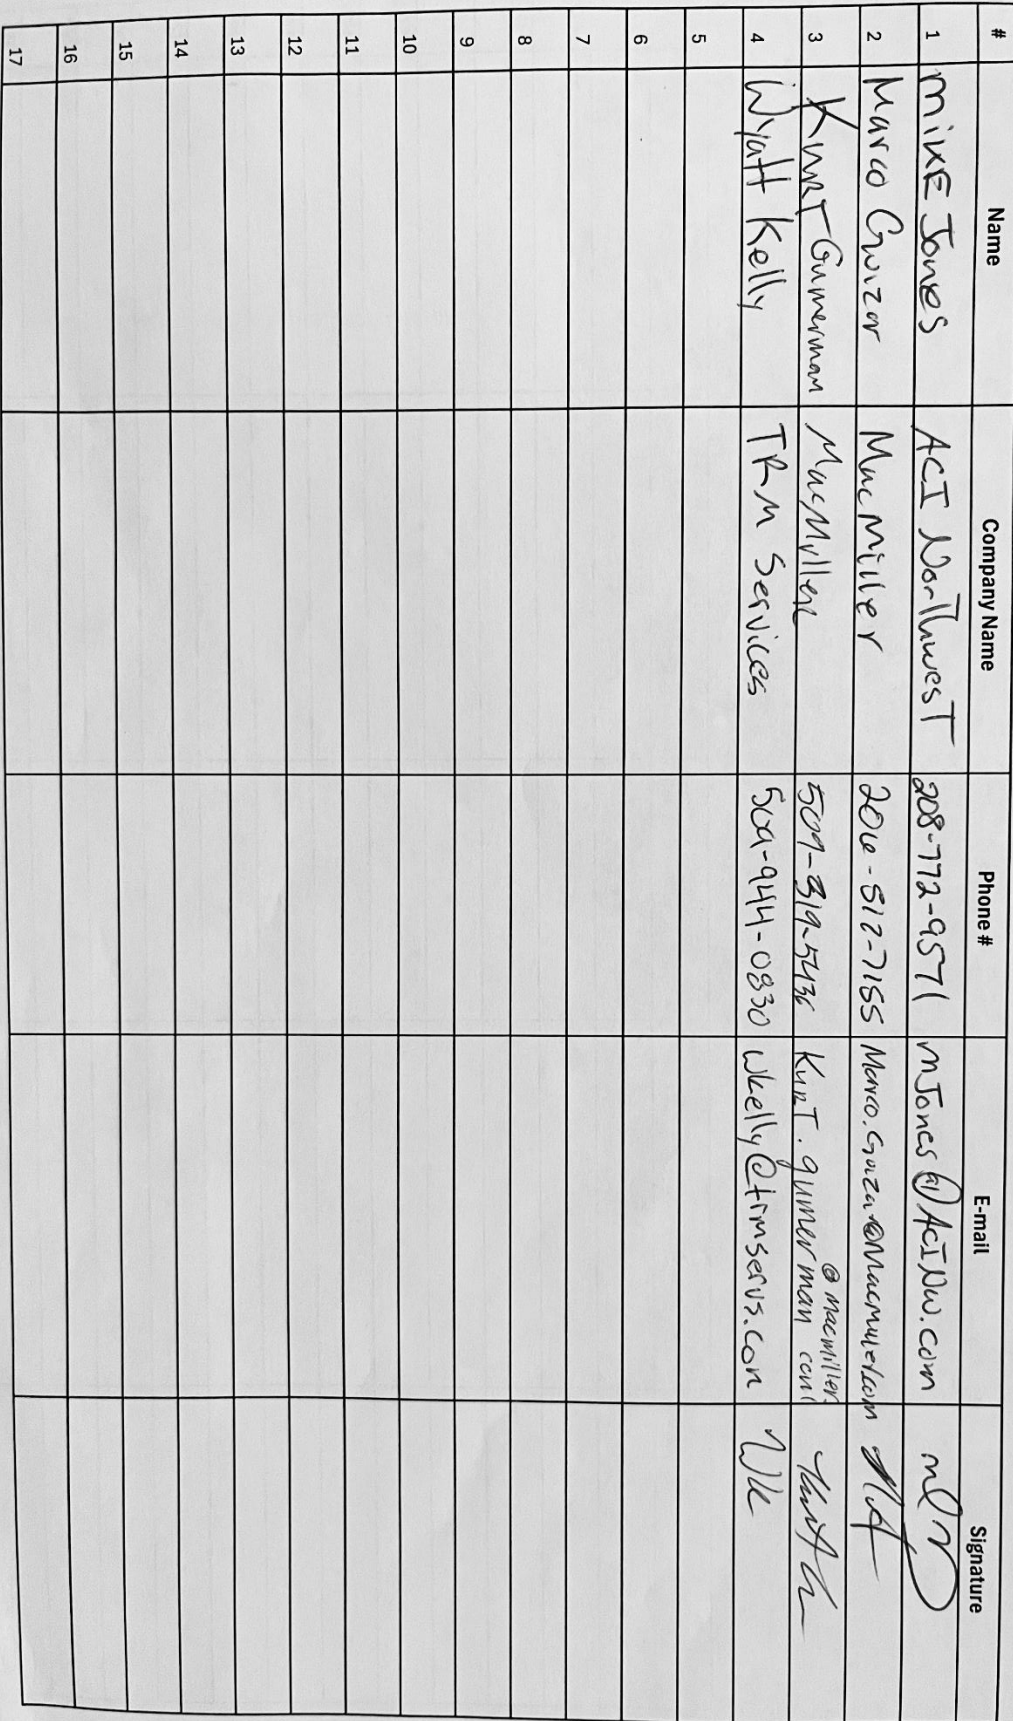 # Name Company Name Phone # E-mail Signature
1 MIKE Jones ACI NorThwesT 208-772-9571 mJones@ACINW.com
2 Marco Guizar MacMiller 206-512-7155
3 KURT Gumerman MacMillen 509-319-5436 KURT.gumerman @macmillen.com
4 Wyatt Kelly TRM Services 509-944-0830 wkelly@trmservs.com
5
6
7
8
9
10
11
12
13
14
15
16
17